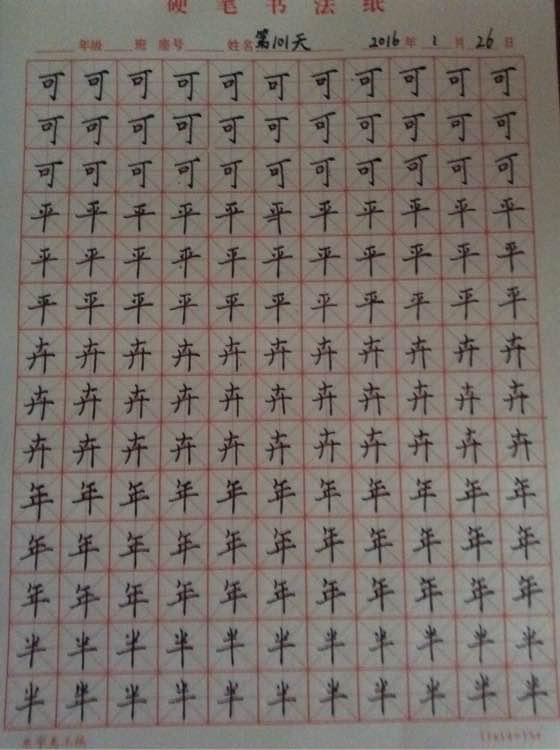 硬笔书法纸
年级 班 座号 姓名 第101天 2016年1月26日
可可可可可可可可可可可
可可可可可可可可可可可
可可可可可可可可可可可
平平平平平平平平平平平
平平平平平平平平平平平
平平平平平平平平平平平
卉卉卉卉卉卉卉卉卉卉卉
卉卉卉卉卉卉卉卉卉卉卉
卉卉卉卉卉卉卉卉卉卉卉
年年年年年年年年年年年
年年年年年年年年年年年
年年年年年年年年年年年
半半半半半半半半半半半
半半半半半半半半半半半